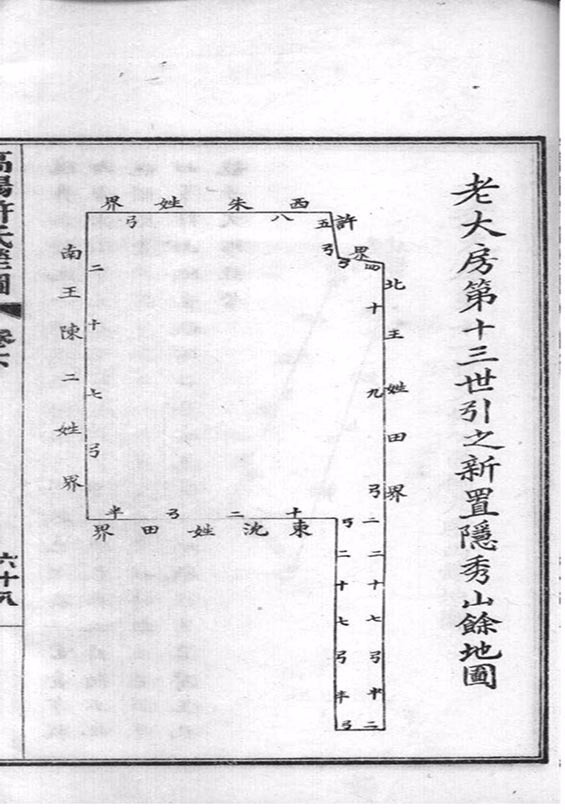 老大房第十三世引之新置隱秀山餘地圖
北王姓田界
許界
西朱姓界
八弓
五弓
四弓
十九弓
南王陳二姓界
二十七弓
東沈姓田界
十二弓半
二十七弓半
二弓
二十七弓半
高陽許氏塋圖
卷六
六十八